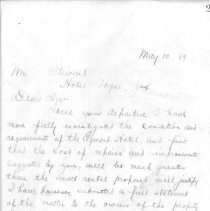 2
May 10 88
Mr Stewart
Hotel Taylor, Tex
Dear Sir
Since your departure I have
more fully investigated the condition and
requirements of the Hotel and find
that the cost of repairs and improvements
suggested by you, will be much greater
than the small rental proposed will justify
I have, however, submitted a full statement
of the matter to the owners of the property